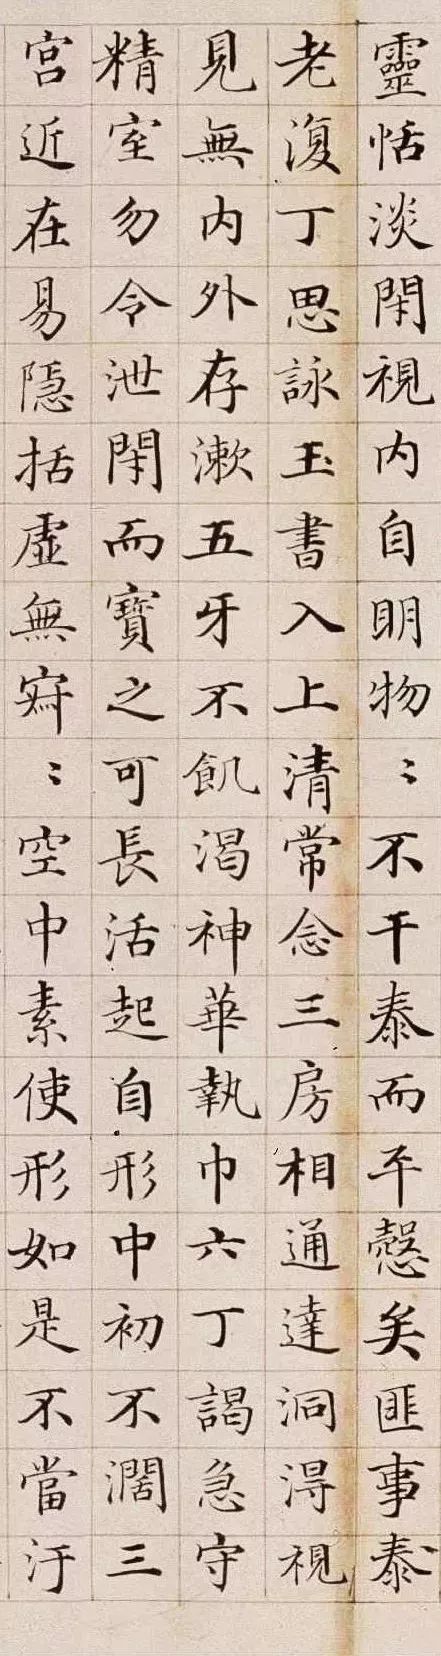 靈恬淡閑視内自明物〻不干泰而平愨矣匪事泰
老復丁思詠玉書入上清常念三房相通達洞淂視
見無内外存漱五牙不飢渴神華執巾六丁謁急守
精室勿令泄閇而寶之可長活起自形中初不濶三
宫近在易隠括虚無㝛〻空中素使形如是不當汙